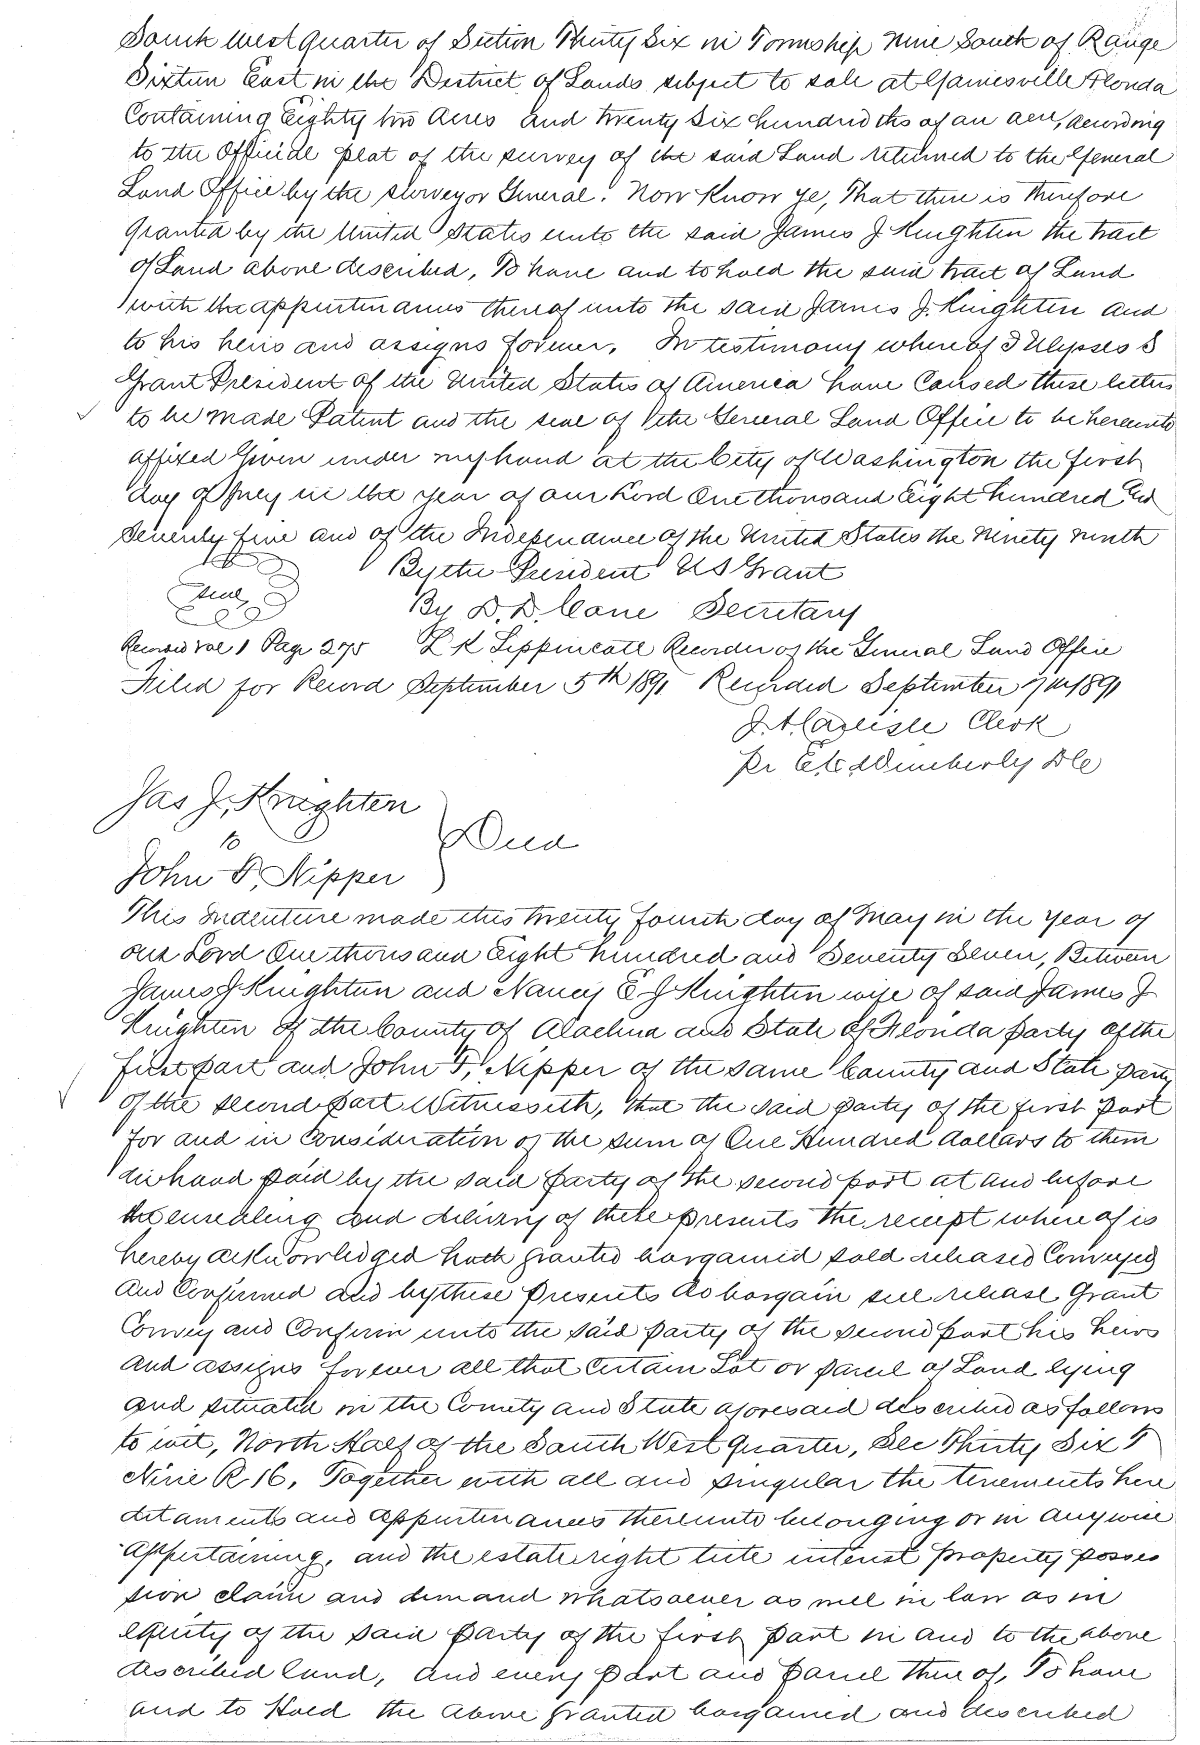 South West Quarter of Section Thirty Six in Township Nine South of Range
Sixteen East in the District of Lands subject to sale at Gainesville Florida
Containing Eighty two Acres and twenty six hundredths of an acre, according
to the Official plat of the survey of the said Land returned to the General
Land Office by the surveyor General. Now Know ye, That there is therefore
granted by the United States unto the said James J Knighten the tract
of Land above described, To have and to hold the said tract of Land
with the appurtenances thereof unto the said James J. Knighten and
to his heirs and assigns forever. In testimony whereof I Ulysses S
Grant President of the United States of America have Caused these letters
to be made Patent and the seal of the General Land Office to be hereunto
affixed Given under my hand at the City of Washington the first
day of July in the year of our Lord One thousand Eight hundred and
Seventy five and of the Independence of the United States the Ninety ninth
By the President U S Grant
Seal
By D. D. Cone Secretary
Record vol 1 Page 275 L K Lippincott Recorder of the General Land Office
Filed for Record September 5th 1891 Recorded September 7th 1891
J. A. Carlisle Clerk
Pr Wimberly D C
Jas J, Knighten
to
Deed
John F, Nipper
This Indenture made this twenty fourth day of May in the year of
our Lord One thousand Eight hundred and Seventy Seven, Between
James J Knighten and Nancy E J Knighten wife of said James J
Knighten of the County of Alachua and State of Florida party of the
first part and John F, Nipper of the same County and State party
of the second part Witnesseth, that the said party of the first part
for and in Consideration of the sum of One Hundred dollars to them
in hand paid by the said party of the second part at and before
the ensealing and delivery of these presents the receipt where of is
hereby acknowledged hath granted bargained sold released Conveyed
and Confirmed and by these presents do bargain sell release Grant
Convey and Confirm unto the said party of the second part his heirs
and assigns forever all that certain Lot or parcel of Land lying
and situated in the County and State aforesaid described as follows
to wit, North Half of the South West quarter, Sec Thirty Six T
Nine R 16, Together with all and singular the tenements here
ditaments and appurtenances thereunto belonging or in anywise
appertaining, and the estate right title interest property posses
sion claim and demand whatsoever as well in law as in
equity of the said party of the first part in and to the above
described land, and every part and parcel there of, To have
and to Hold the above granted bargained and described